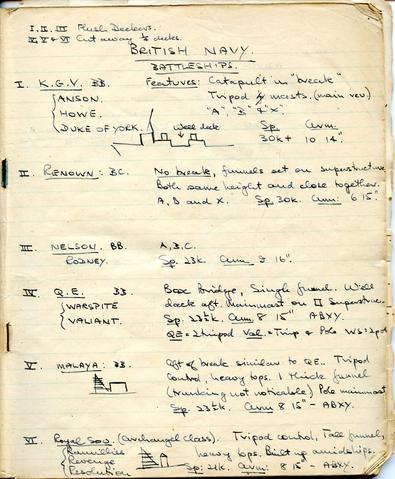 I. II. III Flush Deckers.
IV, V & VI Cut away ½ decks.
BRITISH NAVY.
BATTLESHIPS.
I. K.G.V. BB. Features: Catapult in "break"
ANSON. Tripod masts. (main rev)
HOWE. "A", "B" & "X".
DUKE OF YORK. Well deck Sp. Arm.
30k+ 10 14"
II. RENOWN: BC. No break, funnels set on superstructure
Both same height and close together.
A, B and X. Sp. 30k. Arm: 6 15"
III. NELSON. BB. A, B, C.
RODNEY. Sp. 23k. Arm 9 16".
IV. Q.E. BB. Box Bridge, Single funnel. Well
WARSPITE deck aft. Mainmast on superstruc.
VALIANT. Sp. 23½k. Arm 8 15" ABXY.
QE = 2 tripod Val. = Trip & Pole WS = 2 pole
V MALAYA: BB. Aft of break similar to QE. Tripod
Control, heavy tops. 1 thick funnel
(trunking not noticable) Pole mainmast
Sp. 23½k. Arm 8 15" - ABXY.
VI. Royal Sov. (Archangel class). Tripod control, Tall funnel,
Ramillies heavy tops. Built up amidships.
Revenge
Resolution Sp. 21k. Arm: 8 15" - ABXY.